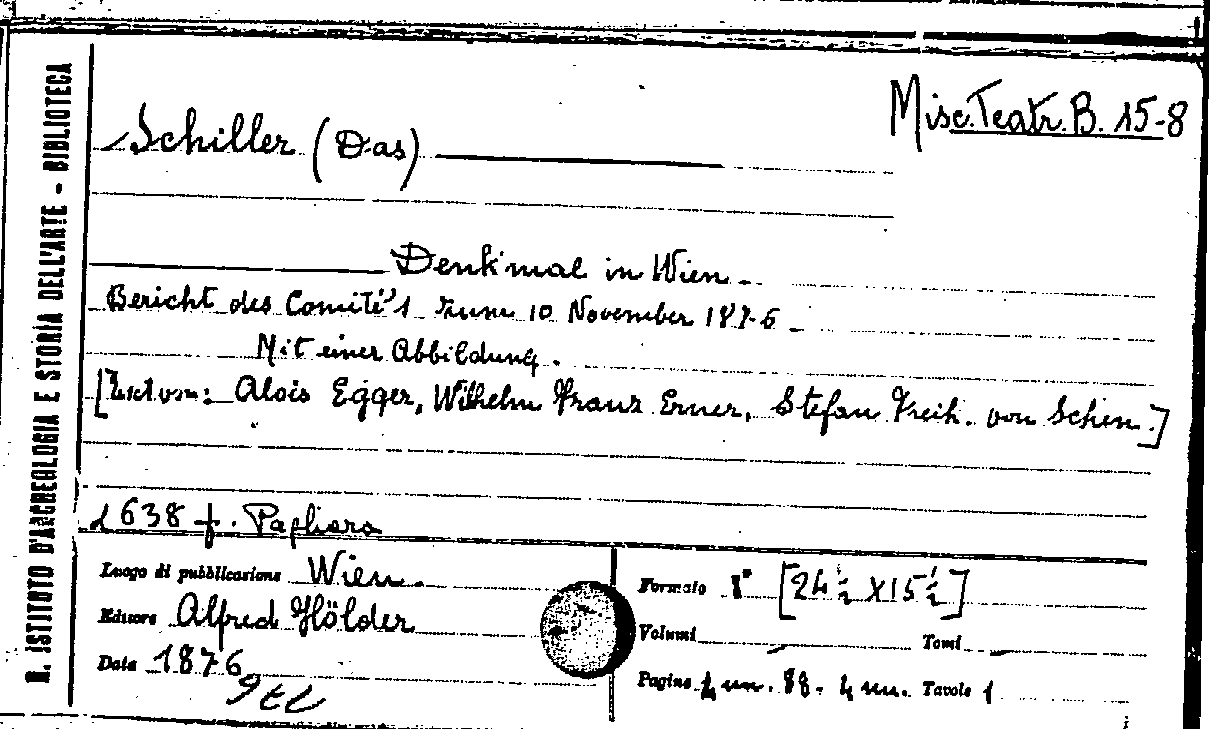 R. ISTITUTO D'ARCHEOLOGIA E STORIA DELL'ARTE - BIBLIOTECA
Misc. Teatr. B. 15-8
Schiller (Das)
Denkmal in Wien.
Bericht des Comité's zum 10 November 1876
Mit einer Abbildung.
[Text von: Alois Egger, Wilhelm Franz Exner, Stefan Freih. von Schen.]
1638 f. Pagliara
Luogo di pubblicazione Wien.
Editore Alfred Hölder
Data 1876
Formato 8° [24½ X 15½]
Volumi Tomi
Pagine 4 nn. 88. 4 nn. Tavole 1